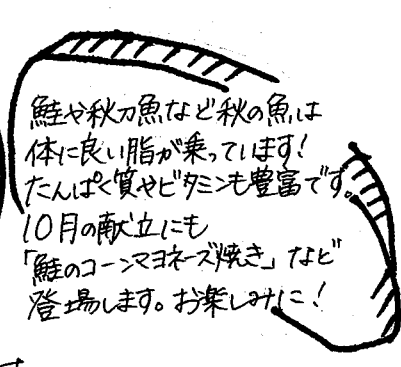 鮭や秋刀魚など秋の魚は
体に良い脂が乗っています！
たんぱく質やビタミンも豊富です。
10月の献立にも
「鮭のコーンマヨネーズ焼き」など
登場します。お楽しみに！